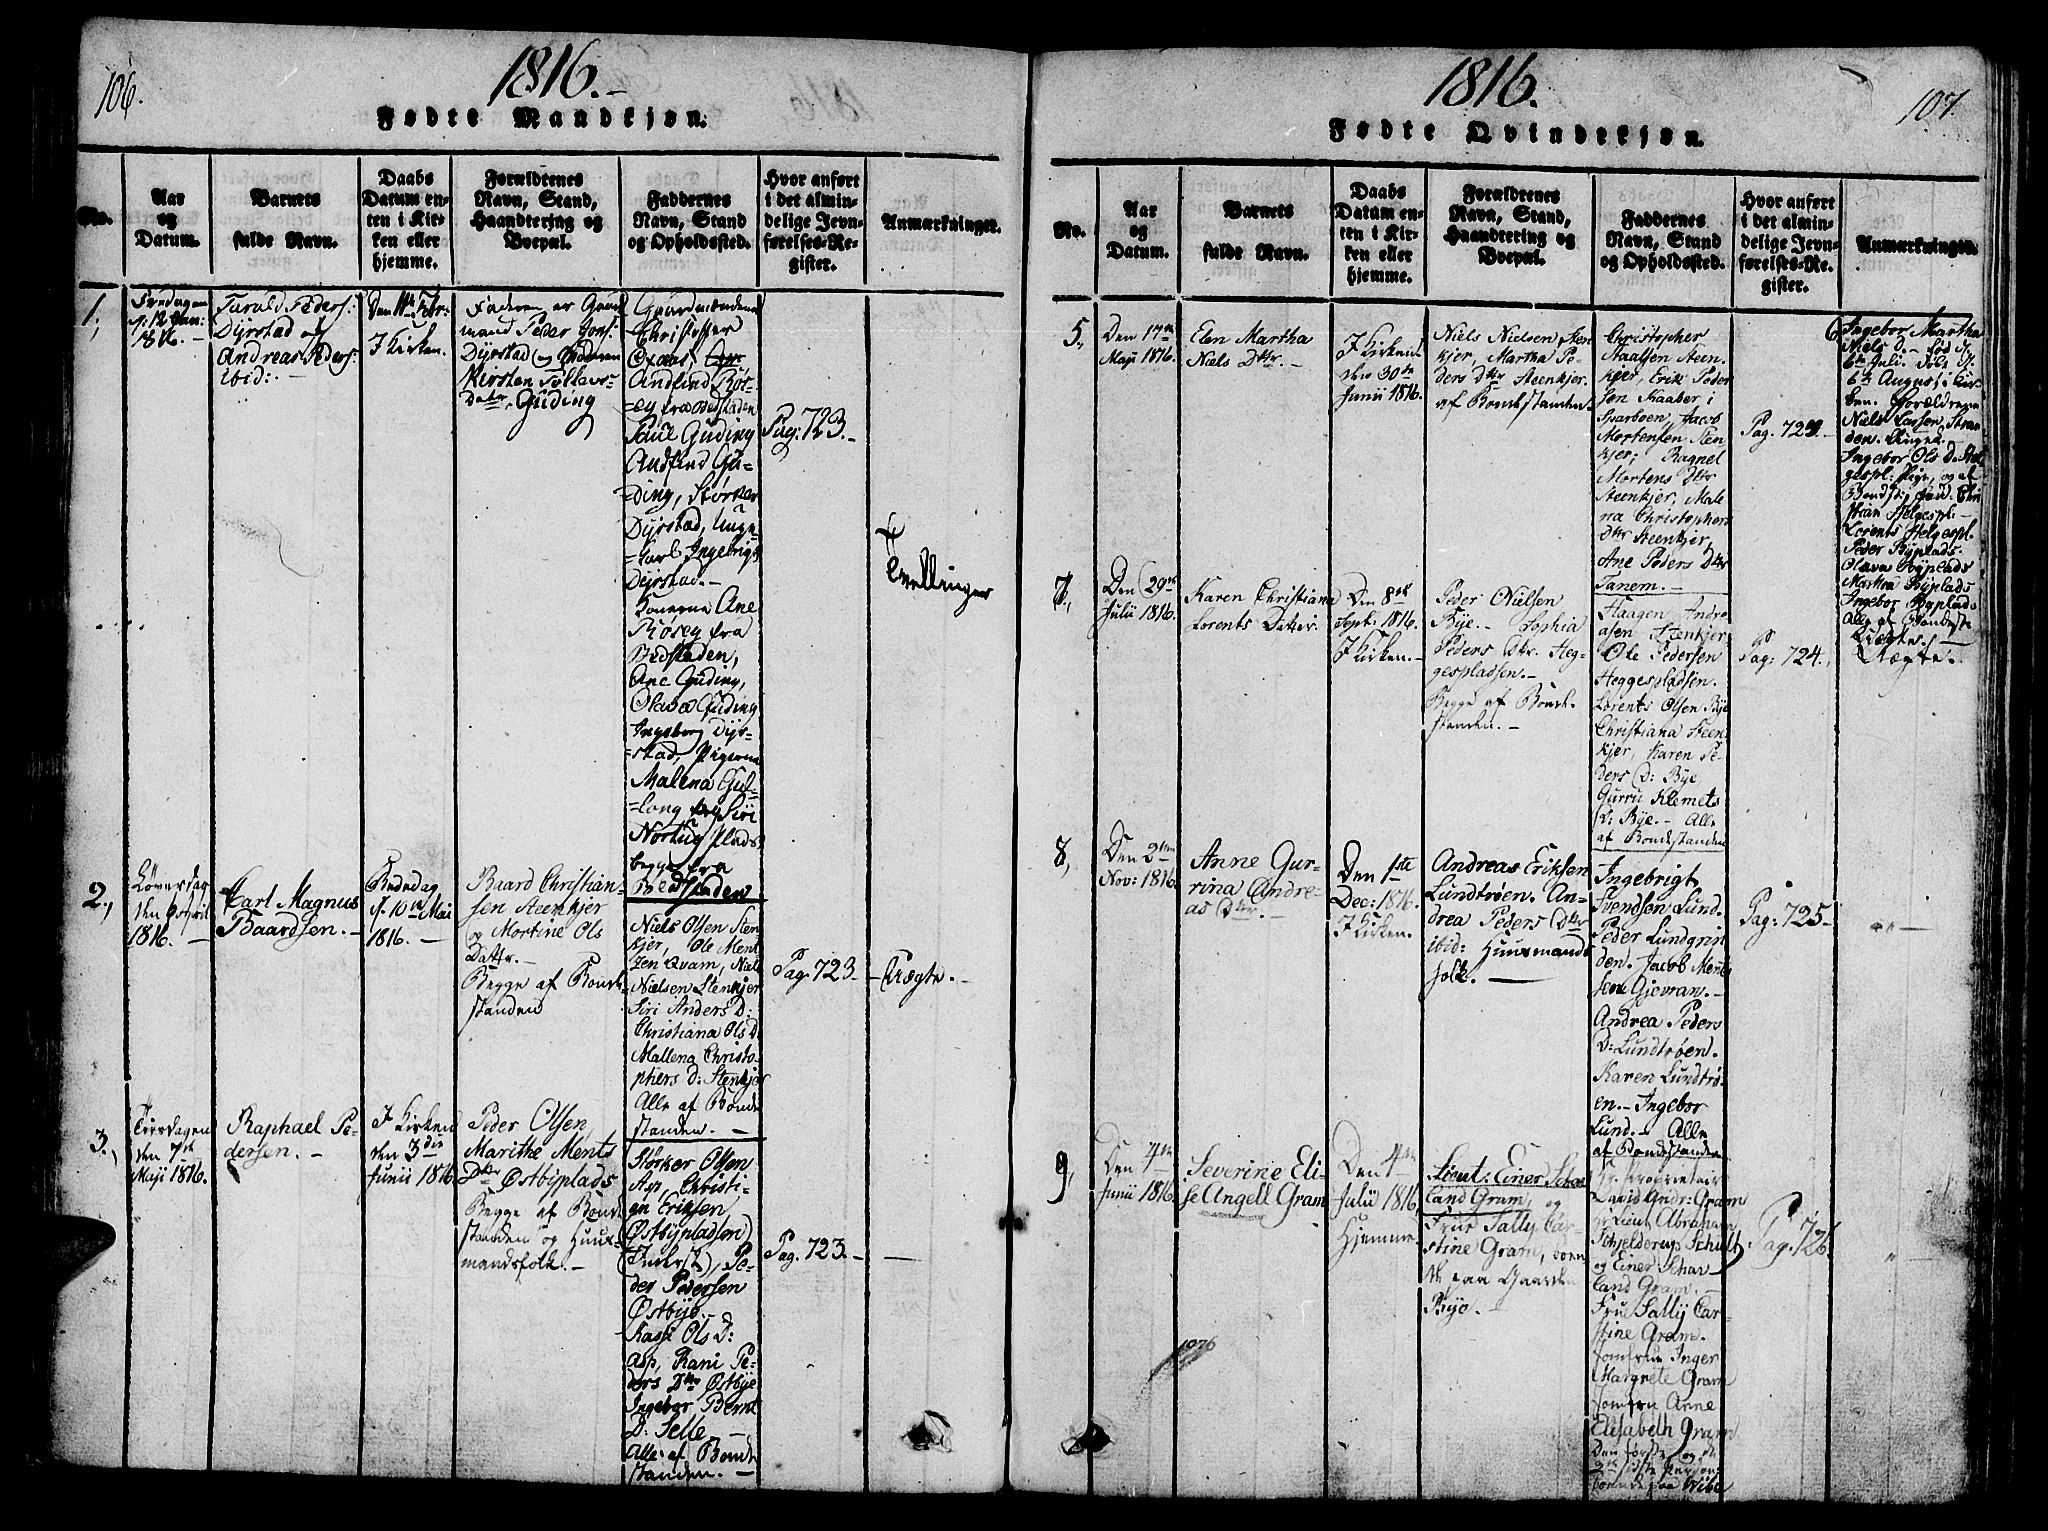 106.
1816.
Fødte Mandkjøn.
No.
Aar
og
Datum.
Barnets
fulde Navn.
Daabs
Datum en-
ten i Kir-
ken eller
hjemme.
Forældrenes
Navn, Stand,
Haandtering og
Boepæl.
Faddernes
Navn, Stand
og Opholdssted.
Hvor anført
i det almin-
delige Jevn-
førelses-Re-
gister.
Anmærkninger.
1,
Fredagen
12 Jan:
1816.
Taruld Peders:
Dyrstad og
Andreas Peders:
ibid:
Den 11te Febr:
I Kirken.
Faderen er Gaard
mand Peder Jons:
Dyrstad og Moderen
Kirsten Tollevs-
Datr, Guding
Gaardmændene
Christopher
Oxaas,
Andfind Røs-
eg fra Bedstaden
Paul Guding
Andfind Gu-
ding, Størker
Dyrstad, Unge-
Karl Ingebrigt
Dyrstad.
Konerne Ane
Røseg fra
Bedstaden,
Ane Guding,
Olava Guding
Ingeborg Dyr-
stad, Pigerne
Malena Gul-
long Siri
Nortug Plads
begge fra
Bedstaden
Pag: 723.
Tvellinger
2.,
Løverdag
den April
1816.
Carl Magnus
Baardsen.
Bededag
d. 10de Mai
1816.
Baard Christian-
sen Steenkjer
og Mortine Ols
Datter.
Begge af Bonde-
standen
Niels Olsen Sten
kjer, Ole Ment
zen Qvam, Niels
Nielsen Stenkjer
Siri Anders D:
Christiana Ols D
Mallena Christo-
phers D: Stenkjer
Alle af Bonde
standen.
Pag. 723.
Uægte.
3.,
Tirsdagen
den 7de
Maji 1816.
Raphael Pe-
dersen.
I Kirken
den 3die
Junii 1816
Peder Olsen,
Marithe Ments
Dtr Østbyplads
Begge af Bonde
standen og Huus-
mandsfolk.
Størker Olsen
Asp, Christi-
an Eriksen
Østbypladsen
(Inderst), Pe-
der Pedersen
Østbye.
Kasse Ols D:
Asp, Rani Pe-
ders Dtr Østbye
Ingebor Bernt
D: Selle
Alle af Bonde
standen.
Pag. 723.
107.
1816.
Fødte Qvindekjøn.
No.
Aar
og
Datum.
Barnets
fulde Navn.
Daabs
Datum en-
ten i Kir-
ken eller
hjemme.
Forældrenes
Navn, Stand,
Haandtering og
Boepæl.
Faddernes
Navn, Stand
og Opholdssted.
Hvor anført
i det almin-
delige Jevn-
førelses-Re-
gister.
Anmærkninger.
5,
Den 17de
Maji 1816.
Elen Martha
Niels Dtr.
I Kirken
den 30te
Junii 1816.
Niels Nielsen Sten
kjer, Martha Pe-
ders Dtr Steenkjer.
af Bondestanden.
Christopher
Staalsen Steen
kjer, Erik Peder
sen Kaaber i
Sparboen, Jacob
Mortensen Sten
kjer; Ragnel
Mortens Dtr
Steenkjer, Male
na Christophers
Dtr Steenkjer,
Ane Peders Dtr
Tanem.
Pag. 724.
6, Ingebor Martha
Niels D. fød d.
6te Julii. Døbt d.
6te August, i Kir-
ken. Forældrene
Niels Larsen, Stran
den. Ungk.
Ingebor Ols D. Hel-
gespl: Pige, og af
Bondst; fad. Chri
stian Helgespl.
Lorents Helgespl.
Peder Byplads.
Olava Byplads
Martha Byplads
Ingebor Byplads
Alle af Bondest.
Uægte.
7,
Den 29de
Julii 1816.
Karen Christiana
Lorents Datter.
Den 8de
Sept: 1816.
I Kirken.
Peder Nielsen
Bye. Sophia
Peders Dtr. Heg-
gespladsen.
Begge af Bonde-
standen.
Haagen Andre
asen Stenkjer
Ole Pedersen
Heggespladsen.
Lorents Olsen Bye
Christiana Steen
kjer, Karen Pe-
ders D: Bye
Gurru Klemets
D: Bye. Alle
af Bondestanden
Pag: 724.
Uægte.
8,
Den 2den
Nov: 1816.
Anne Gur-
rina Andre-
as Dtr.
Den 1ste
Dec: 1816.
I Kirken.
Andreas Eriksen
Lundtrøen. An-
drea Peders Dtr
ibid: Huusmands
folk.
Ingebrigt
Svendsen Lund.
Peder Lundgrin
den. Jacob Ment
sen Gjevran.
Andrea Peders
D: Lundtrøen.
Karen Lundtrø-
en. Ingebor
Lund. Alle
af Bondestanden
Pag: 725.
9,
Den 4de
Junii 1816.
Severine Eli-
se Angell Gram
Den 4de
Julii 1816,
Hjemme.
Lieut: Einer Schav
land Gram, og
Frue Sally Car-
stine Gram, boen
de paa Gaarden
Bye.
Hr. Proprietair
David Andr: Gram
Hr Lieut Abraham
Schjelderup Schult
og Einer Schav
land Gram.
Fru Sally Car-
stine Gram.
Jomfrue Inger
Margrete Gram
Jomfru Anne
Elisabeth Gram
Den første og de
sidste Personer
boende paa Wibe
Pag. 726.
1076